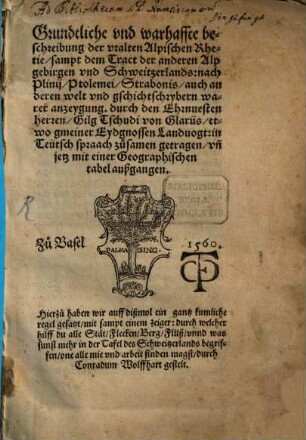 Ad Bibliothecam
Grundtliche vnd warhaffte be-
schreibung der vralten Alpischen Rhe-
tie/ sampt dem Tract der anderen Alp
gebirgen vnd Schweitzerlands: nach
Plinij/ Ptolemei/ Strabonis/ auch an
deren welt vnd gschichtschrybern wa-
rer anzeygung. durch den Ehrnuesten
herren/ Gilg Tschudi von Glarus/ et-
wo gmeiner Eydgnossen Landuogt: in
Teütsch spraach zůsamen getragen/ vñ
jetz mit einer Geographischen
tabel außgangen.
BIBLIOTHECA
REGIA
MONACENSIS
PALMA BING.
Zů Basel 1560.
Hierzů haben wir auff dißmol ein gantz kumliche
regel gesatzt/ mit sampt einem zeiger: durch welcher
hilff du alle Stät/ Flecken/ Berg/ Flüß/ vnnd was
sunst mehr in der Tafel des Schweitzerlands begrif-
fen/ one alle mie vnd arbeit finden magst/ durch
Conradum Wolffhart gestelt.